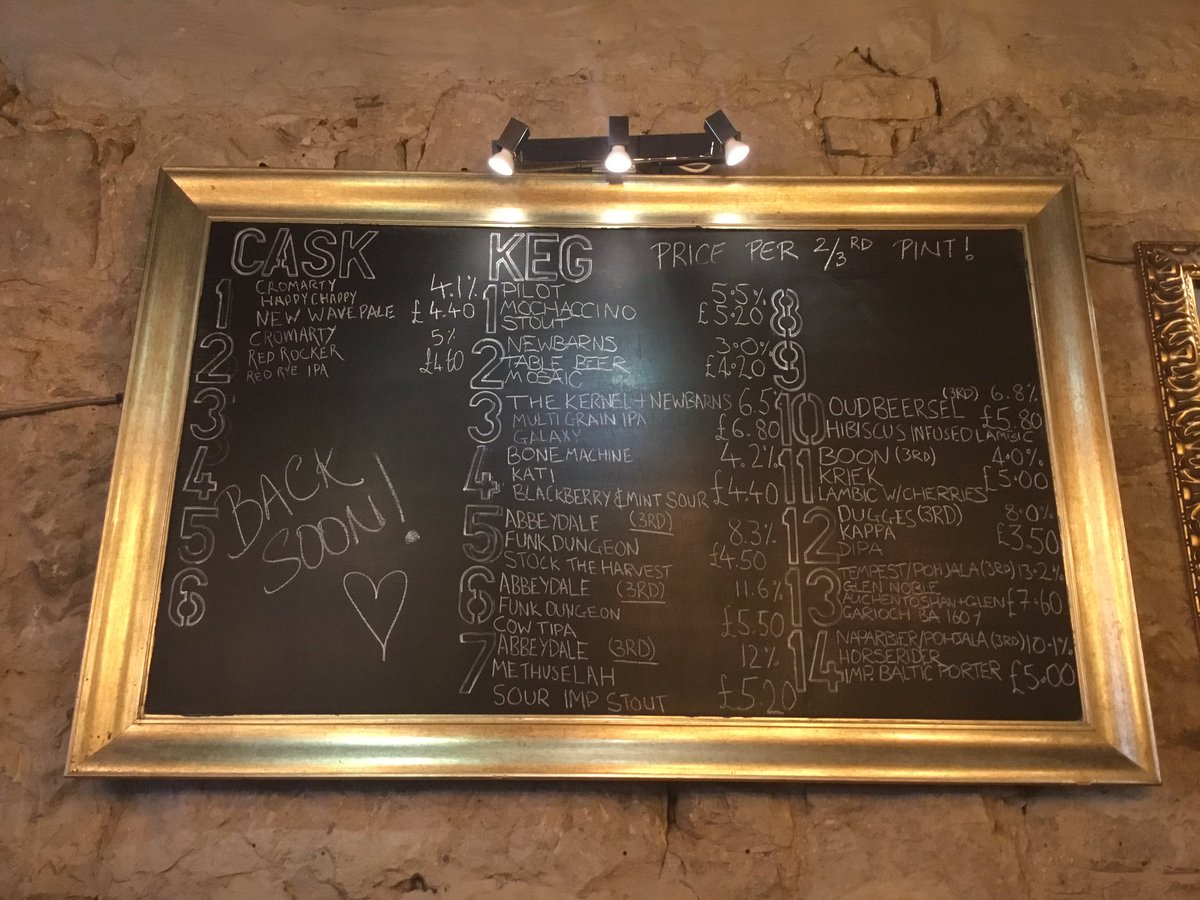 CASK
1 CROMARTY 4.1%
HAPPY CHAPPY
NEW WAVE PALE £4.40
2 CROMARTY 5%
RED ROCKER £4.60
RED RYE IPA
3
4
5
6
BACK
SOON!
KEG PRICE PER 2/3RD PINT!
1 PILOT 5.5%
MOCHACCINO £5.20
STOUT
2 NEWBARNS 3.0%
TABLE BEER £4.20
MOSAIC
3 THE KERNEL + NEWBARNS 6.5%
MULTIGRAIN IPA £6.80
GALAXY
4 BONE MACHINE 4.2%
KATI
BLACKBERRY & MINT SOUR £4.40
5 ABBEYDALE (3RD) 8.3%
FUNK DUNGEON
STOCK THE HARVEST £4.50
6 ABBEYDALE (3RD) 11.6%
FUNK DUNGEON
COW TIPA £5.50
7 ABBEYDALE (3RD) 12%
METHUSELAH
SOUR IMP STOUT £5.20
8
9
10 OUD BEERSEL (3RD) 6.8%
HIBISCUS INFUSED LAMBIC £5.80
11 BOON (3RD) 4.0%
KRIEK £5.00
LAMBIC W/CHERRIES
12 DUGGES (3RD) 8.0%
KAPPA £3.50
DIPA
13 TEMPEST/POHJALA (3RD) 13.2%
GLEN NOBLE
AUCHENTOSHAN + GLEN £7.60
GARIOCH BA 1607
14 NAPARBIER/POHJALA (3RD) 10.1%
HORSERIDER
IMP BALTIC PORTER £5.00